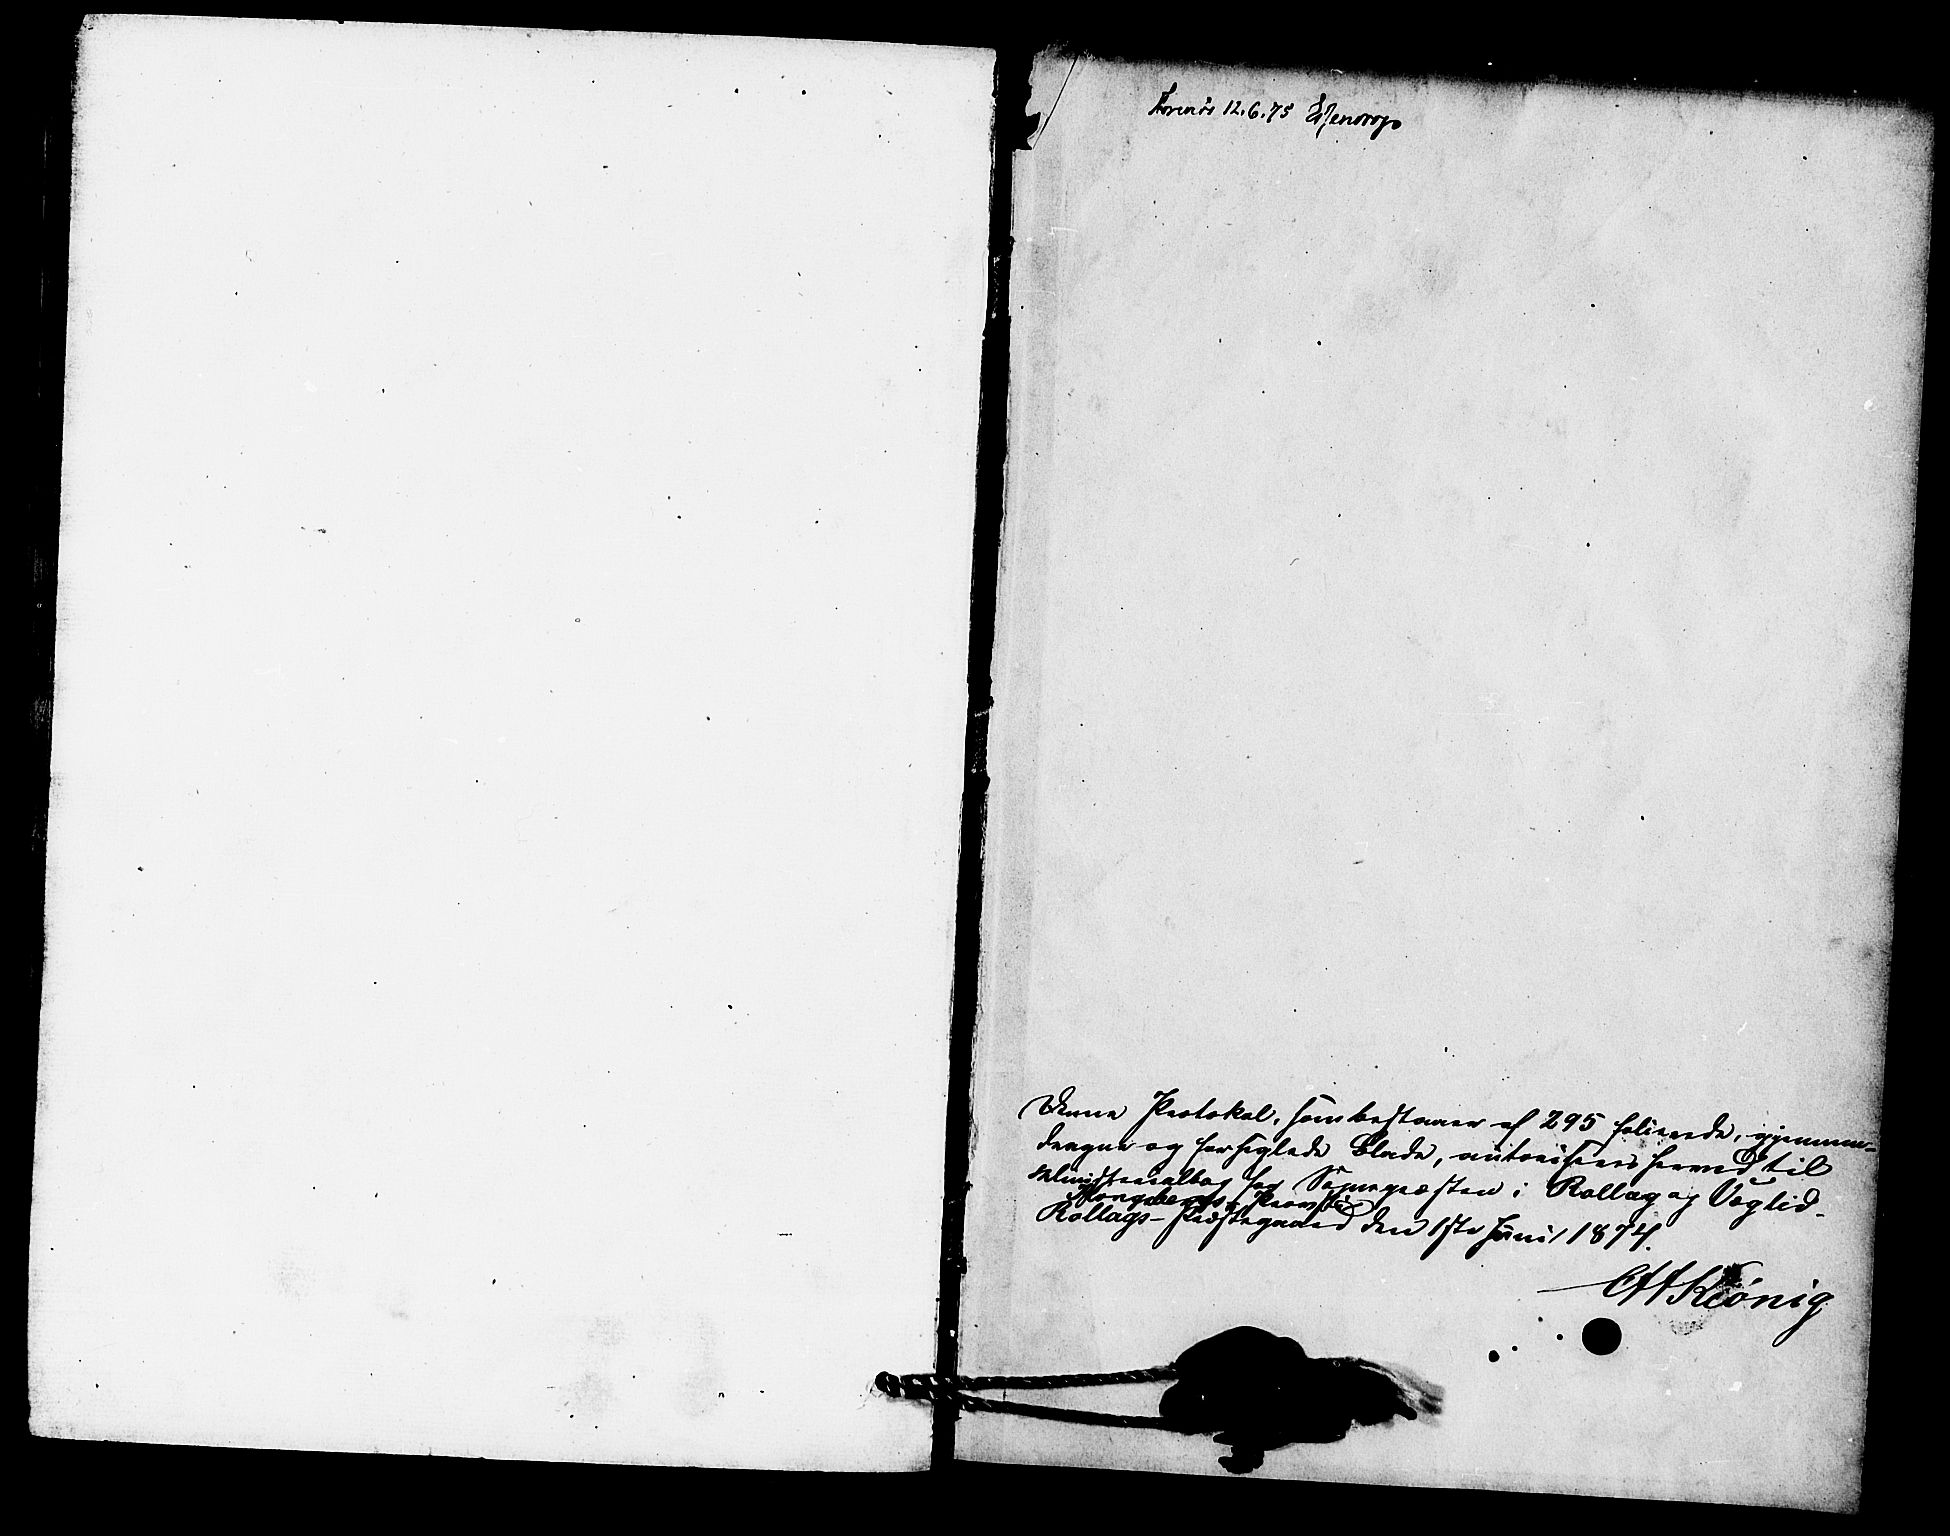 12.6.75
Denne Protokol, som bestaaer af 295 folierede, gjennem-
dragne og forseglede Blade, autoriseres herved til
Ministerialbog for Sognepræsten i Rollag og
Kongsbergs Provstie
Rollags-Præstegaard den 1ste Juni 1874.